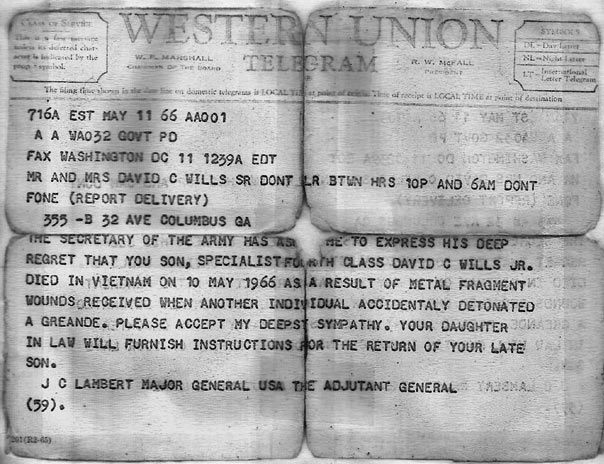 CLASS OF SERVICE
This is a fast message
unless its deferred char-
acter is indicated by the
proper symbol.
WESTERN UNION
TELEGRAM
W. P. MARSHALL
CHAIRMAN OF THE BOARD
R. W. McFALL
PRESIDENT
SYMBOLS
DL=Day Letter
NL=Night Letter
LT=International Letter Telegram
The filing time shown in the date line on domestic telegrams is LOCAL TIME at point of origin. Time of receipt is LOCAL TIME at point of destination
716A EST MAY 11 66 AA001
A A WA032 GOVT PD
FAX WASHINGTON DC 11 1239A EDT
MR AND MRS DAVID C WILLS SR DONT LR BTWN HRS 10P AND 6AM DONT
FONE (REPORT DELIVERY)
355 -B 32 AVE COLUMBUS GA
THE SECRETARY OF THE ARMY HAS ME TO EXPRESS HIS DEEP
REGRET THAT YOU SON, SPECIALIST FOURTH CLASS DAVID C WILLS JR.
DIED IN VIETNAM ON 10 MAY 1966 AS A RESULT OF METAL FRAGMENT
WOUNDS RECEIVED WHEN ANOTHER INDIVIDUAL ACCIDENTALY DETONATED
A GREANDE. PLEASE ACCEPT MY DEEPST SYMPATHY. YOUR DAUGHTER
IN LAW WILL FURNISH INSTRUCTIONS FOR THE RETURN OF YOUR LATE
SON.
J C LAMBERT MAJOR GENERAL USA THE ADJUTANT GENERAL
(59).
201(R2-65)